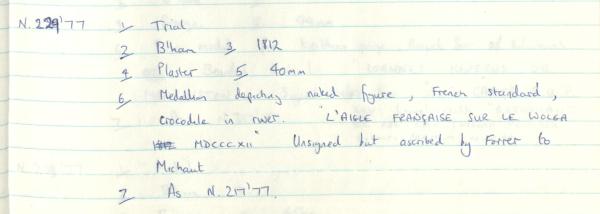 N.229'77 1 Trial
2 B'ham 3 1812
4 Plaster 5 40mm
6 Medallion depicting naked figure, French standard,
crocodile in river. "L'AIGLE FRANÇAISE SUR LE WOLGA
MDCCCXII" Unsigned but ascribed by Forrer to
Michaut
7 As N.217'77.